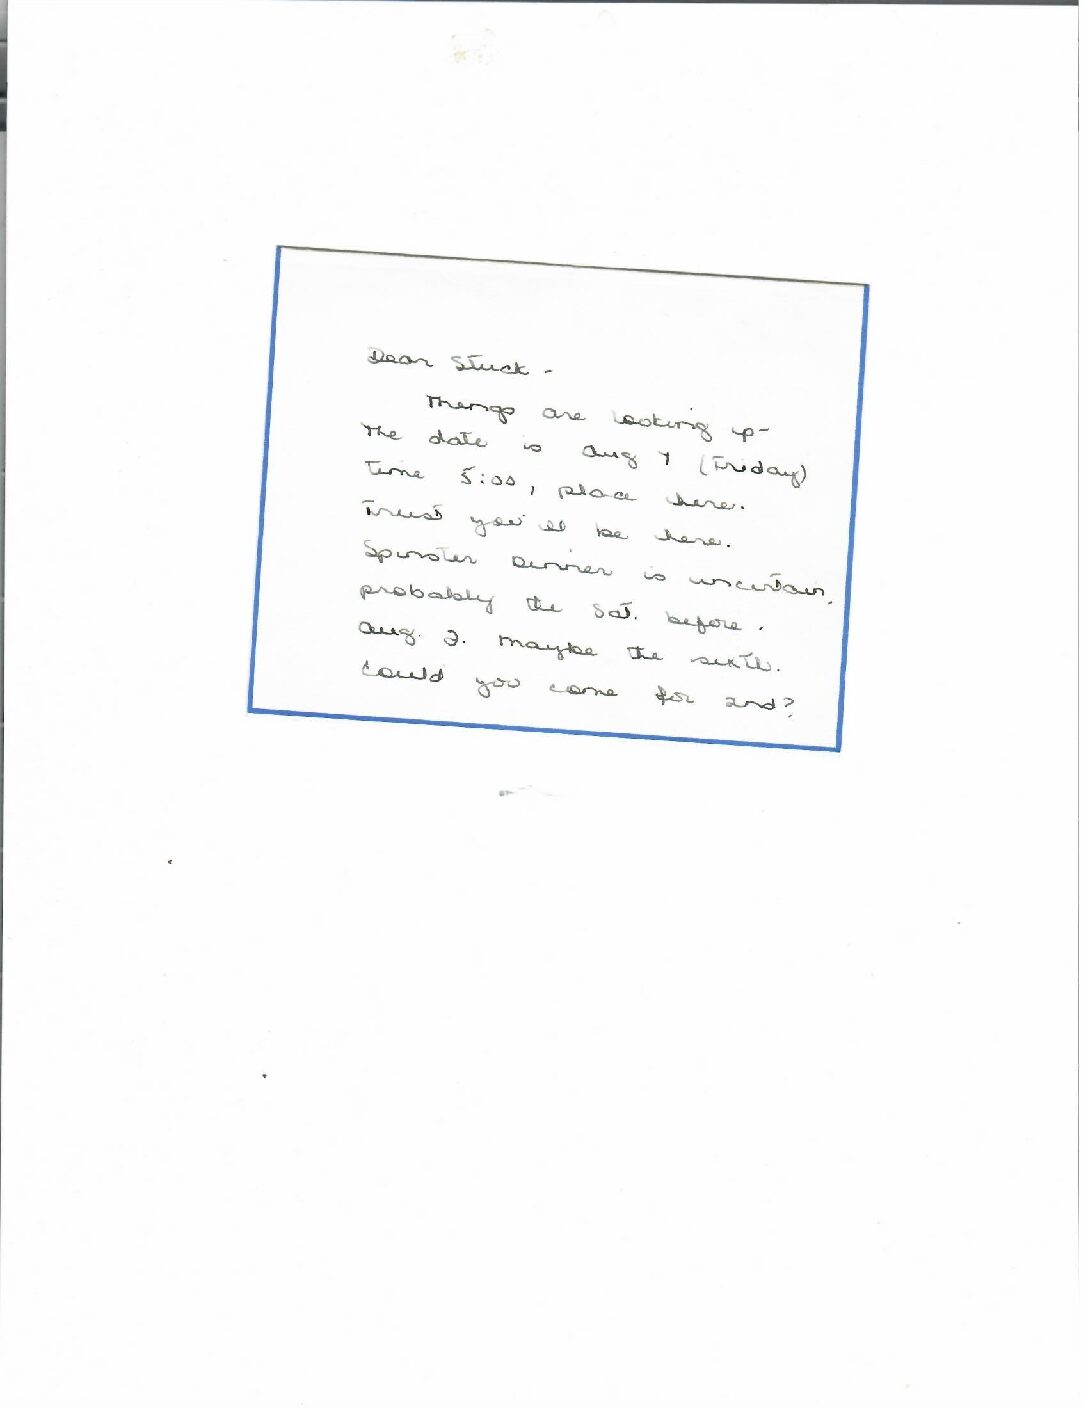 Dear Stuck -
Things are looking up -
The date is Aug 7 (Friday)
Time 5:00, place here.
Trust you'll be here.
Spinster Dinner is uncertain,
probably the Sat. before.
Aug. 2. Maybe the sixth.
Could you come for 2nd?